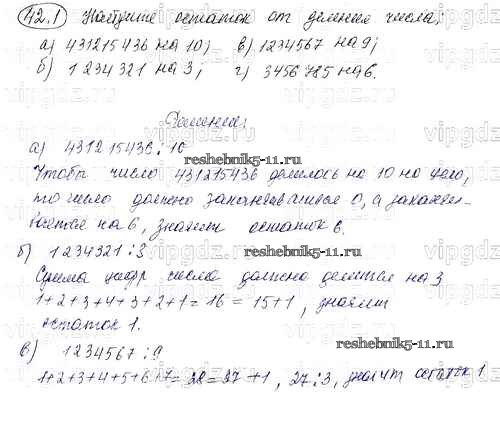 42.1 Найдите остаток от деления числа:
а) 431215436 на 10; в) 1234567 на 9;
б) 1234321 на 3; г) 3456785 на 6.
Решение:
а) 431215436 : 10
reshebnik5-11.ru
Чтобы число 431215436 делилось на 10 на цело,
то число должно заканчиваться 0, а заканчи-
вается на 6, значит остаток 6.
б) 1234321 : 3
reshebnik5-11.ru
Сумма цифр числа должна делится на 3
1+2+3+4+3+2+1=16 = 15+1, значит
остаток 1.
в) 1234567 : 9
reshebnik5-11.ru
1+2+3+4+5+6+7=28=27+1, 27:3, значит остаток 1